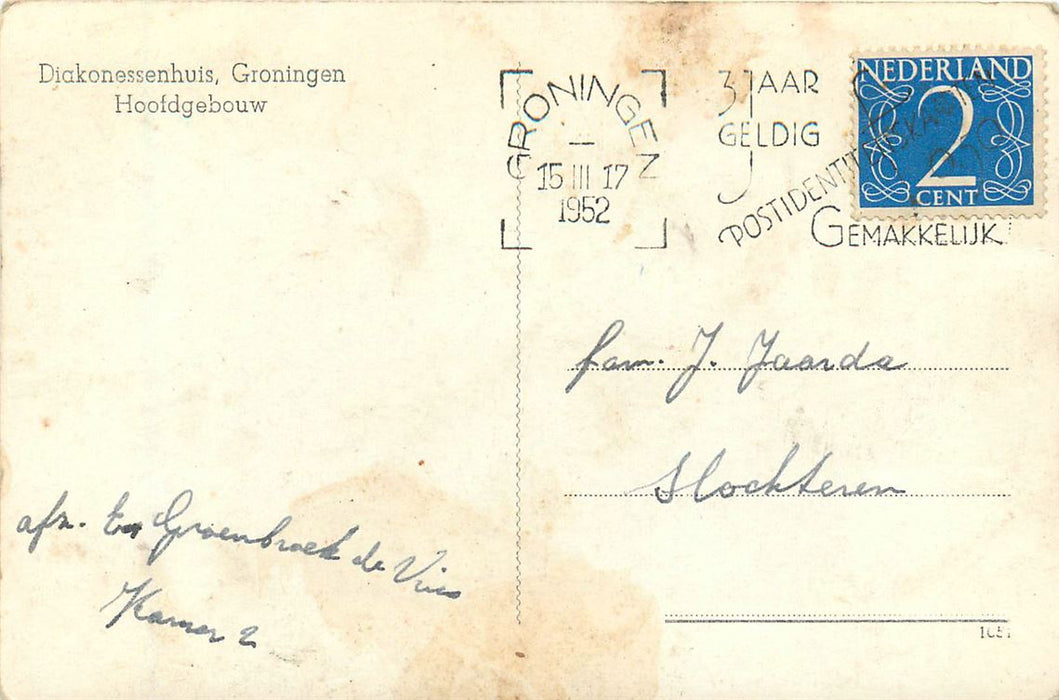 Diakonessenhuis, Groningen
Hoofdgebouw
GRONINGEN
15 III 17
1952
3 JAAR
GELDIG
POSTIDENTITEITSKAARTEN
GEMAKKELIJK!
NEDERLAND
2
CENT
fam. J. Jaarda
Slochteren
afz. Groenbroek de Vries
Kamer 2